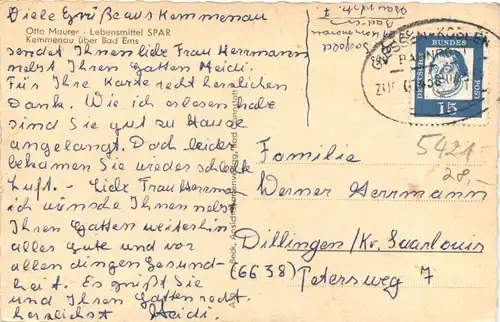 Viele Grüße aus Kemmenau
Otto Maurer - Lebensmittel SPAR
Kemmenau über Bad Ems
sendet Ihnen liebe Frau Herrmann
nebst Ihren Gatten Heidi.
Für Ihre Karte recht herzlichen
Dank. Wie ich erlesen habe
sind Sie gut zu Hause
angelangt. Doch leider
bekamen Sie wieder schlecht
Luft. - Liebe Frau Herrman
ich wünsche Ihnen nebst
Ihren Gatten weiterhin
alles Gute und vor
allen dingen Gesund-
heit. Es grüßt Sie
und Ihren Gatten recht
herzlichst Heidi.
GIESSEN-KOBLENZ
BAHNPOST
ZUG
DEUTSCHE BUNDESPOST
15
5421
28,-
Familie
Werner Herrmann
Dillingen/Kr. Saarlouis
(6638) Petersweg 7